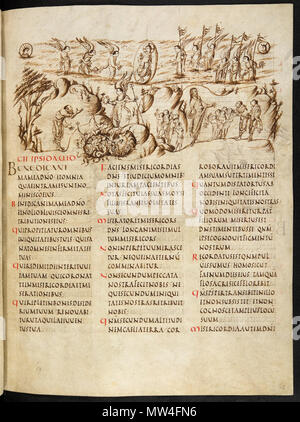 CII IPSI DAVID
BENEDIC ANI
MAMEADNO ETOMNIA
QUAEINTRAMESUNTNO
MINISCOEIUS
BENEDICANIMAMEADNO
ETNOLIOBLIVISCIOMNESRE
TRIBUTIONESEIUS
QUIPROPITIATUROMNIBUS
INIQUITATIBUSTUIS QUISA
NATOMNESINFIRMITATES
TUAS
QUIREDIMITDEINTERITUVI
TAMTUAM QUICORONAT
TEINMISERICORDIAETMI
SERATIONIBUS
QUIREPLETINBONISDESIDE
RIUMTUUM RENOVABI
TURUTAQUILAEIUVEN
TUSTUA
FACIENSMISERICORDIAS
DNS ETIUDICIUMOMNIB
INIURIAMPATIENTIBUS
NOTASFECITVIASSUASMOY
SI FILIISISRAHELVOLUN
TATESSUAS
MISERATORETMISERICORS
DNS LONGANIMISETMUL
TUMMISERICORS
NONINPERPETUUMIRASCE
TUR NEQ INAETERNU
COMMINABITUR
NONSECUNDUMPECCATA
NOSTRAFECITNOBIS NE
QUESECUNDUMINIQUI
TATESNOSTRASRETRIBUIT
NOBIS
QNMSECUNDUMALTITUDI
NEMCAELIATERRA COR
ROBORAVITMISERICORDI
AMSUAMSUPERTIMENTESSE
QUANTUMDISTATORTUSAB
OCCIDENTE LONGEFECITA
NOBISINIQUITATESNRAS
QUOMODOMISERETURPA
TERFILIORUM MISERTUSEST
DNSTIMENTIBUSSE
QNMIPSECOGNOVITFIGMEN
TUMNOSTRUM
RECORDATUSESTQNMPUL
VISSUMUS HOMOSICUT
FAENUMDIESEIUSTAMQUA
FLOSAGRISICEFFLOREBIT
QNMSPSPERTRANSIBITINILLO
ETNONSUBSISTET ETNON
COGNOSCETAMPLIUSLOCU
SUUM
MISERICORDIAAUTEMDNI
alamy
MW4FN6